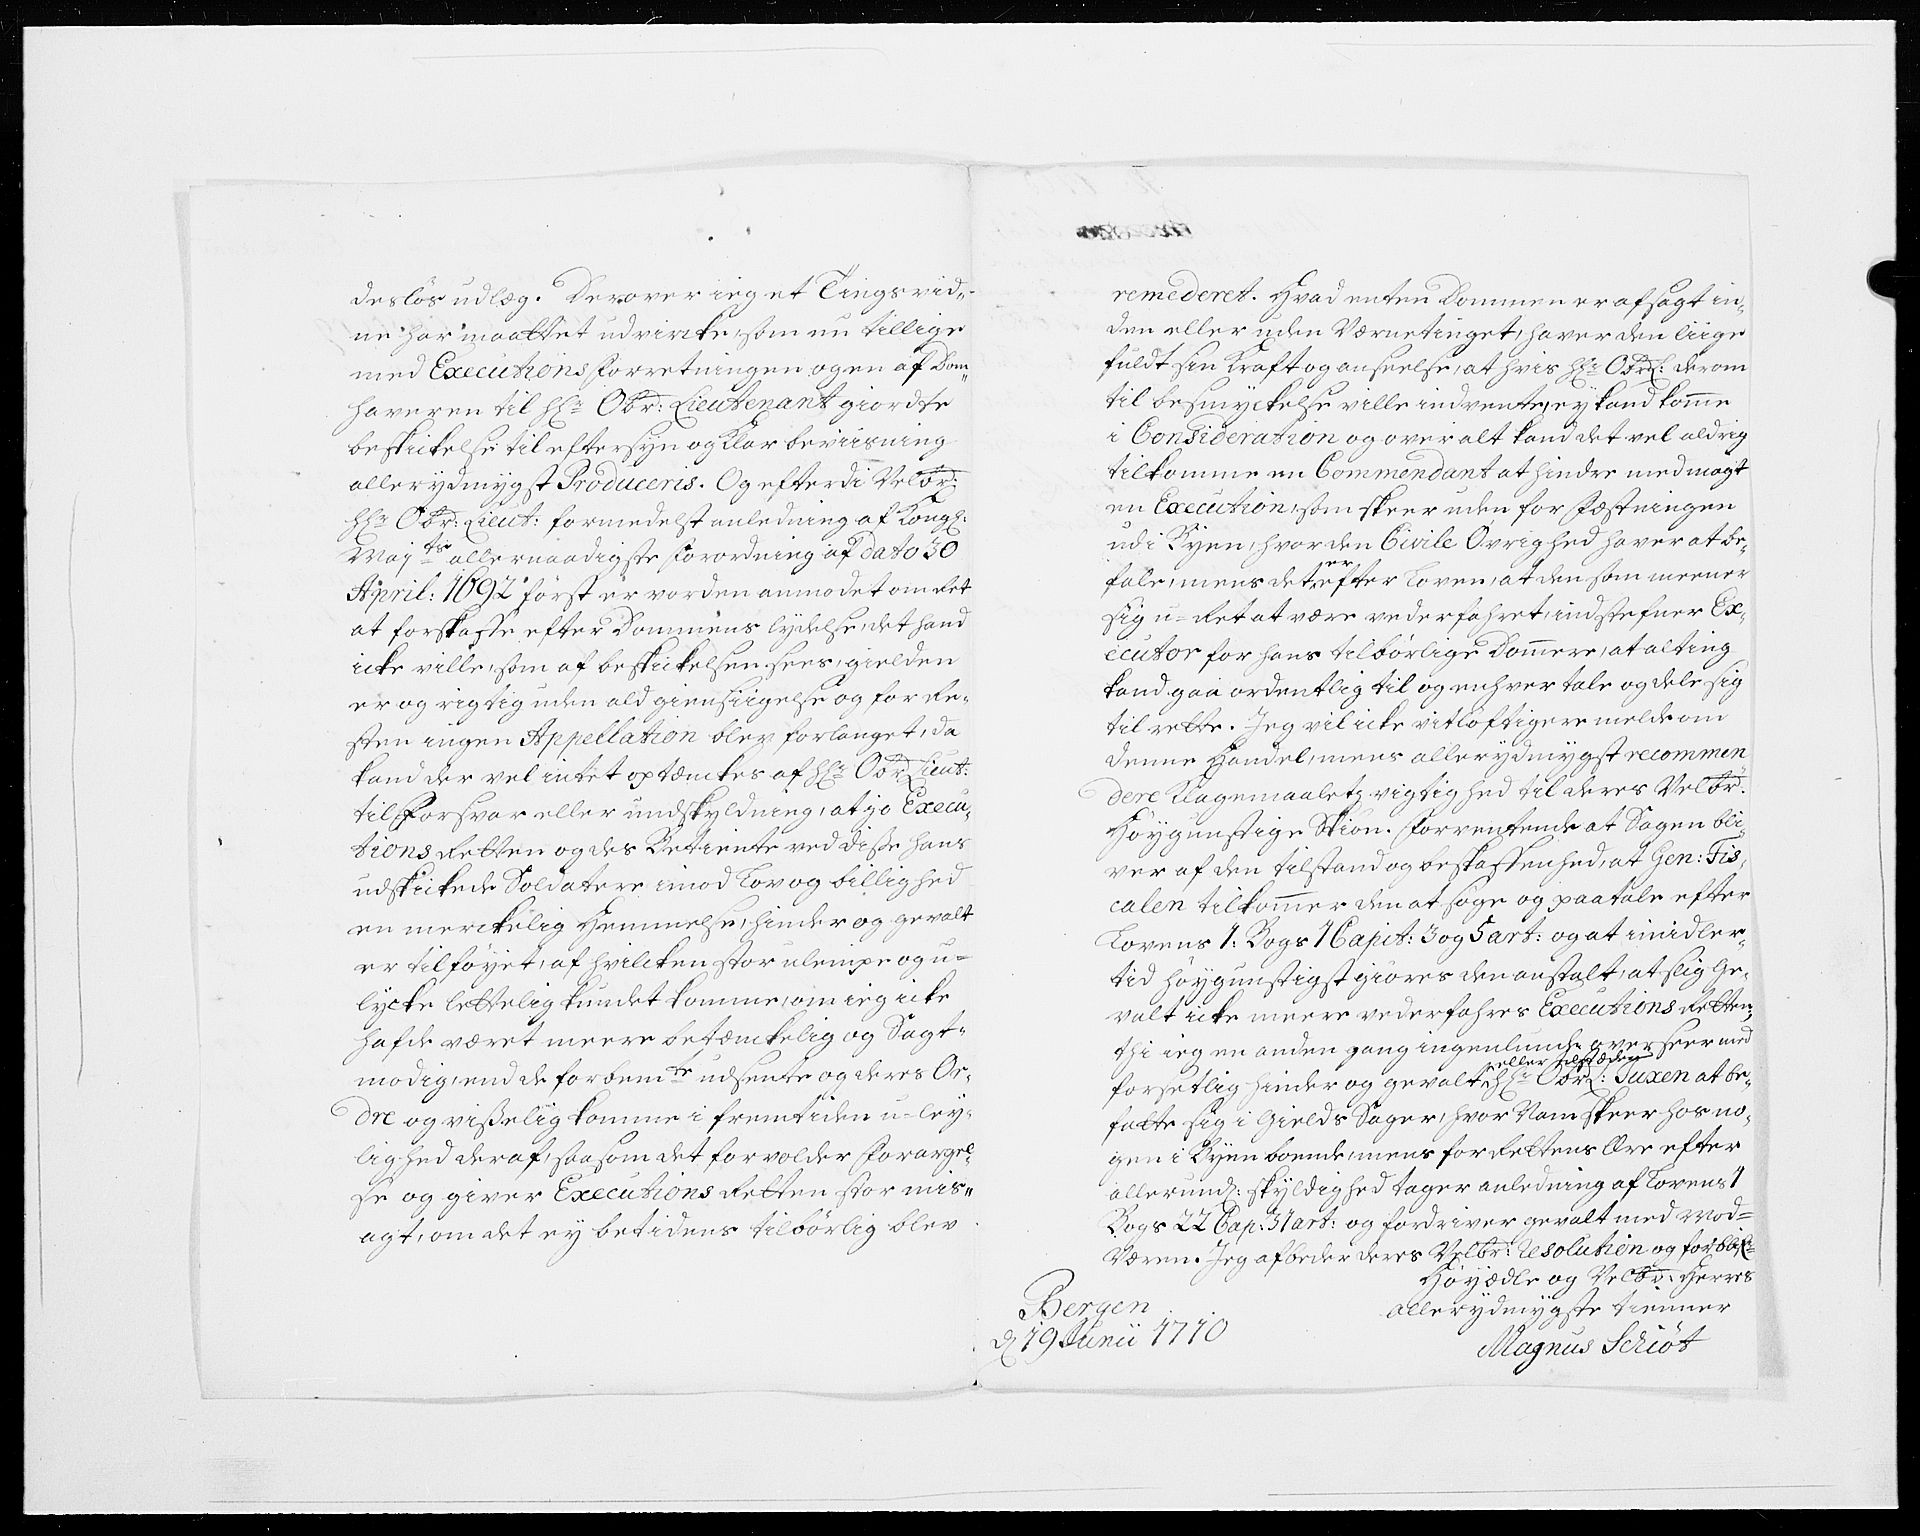 deslös udlæg. Derover ieg et Tingsvid„
ne har maattet udvircke, som nu tillige
med Executions Forretningen og en af Dom„
haveren til Hr: Obr: Lieutenant giordte
beskickelse til eftersyn og klar beviisning
allerydmygst Produceris. Og efterdi Velbr:
Hr: Obr: Lieut: formedelst anledning af Kongl:
May ts allernaadigste Forordning af dato 30
April: 1692 först er vorden anmodet om Ret
at forskaffe efter Dommens lydelse, det hand
icke ville, som af beskickelsen sees, gielden
er og rigtig uden ald giensiigelse og for Re„
sten ingen Appellation blev forlanget, da
kand der vel intet optænckes af Hr: Obr Lieut:
til Forsvar eller undskyldning, at jo Execu„
tions Retten og des Betiente ved disse hans
udskickede Soldatere imod Lov og billighed
en merckelig Hemmelse, hinder og gevalt
er tilföyet, af hvilcken stor ulempe og u=
lycke lettelig kundet komme, om ieg icke
hafde været meere betænckelig og Sagt=
modig, end de forbemte udsente og deres Or„
dre og visselig komme i fremtiden u-ley„
lighed deraf, saasom det forvolder Forargel„
se og giver Executions Retten stor mis„
agt, om det ey betidens tilbörlig blev
remederet. Hvad enten Dommen er afsagt in„
den eller uden Værnetinget, haver den liige
fuldt sin Kraft og anseelse, at hvis Hr: Obrl: derom
til besmyckelse ville indvente, ey kand kome
i Consideration og over alt kand det vel aldrig
tilkomme en Commendant at hindre med magt
en Execution, som skeer uden for Fæstningen
udi Byen, hvor den Civile Övrighed haver at be„
fale, mens det er efter Loven, at den som meener
sig u-Ret at være vederfahret, indstefner Ex„
ecutor for hans tilbörlige Domere, at alting
kand gaa ordentlig til og enhver tale og dele sig
til rette. Jeg vil icke vitlöftigere melde om
denne Handel, mens allerydmygst recommen
dere Klagemaalets vigtighed til deres Velbr:
Höygunstige Skiön. Forventende at Sagen bli„
ver af den tilstand og beskaffenhed, at Gen: Fis„
calen tilkomer den at söge og paatale efter
Lovens 1: Bogs 1 Capit: 3 og 5 art: og at imidler„
tid höygunstigst giöres den anstalt, at slig Ge„
valt icke meere vederfahres Executions Retten,
thi ieg en anden gang ingenlunde overseer med
forsetlig hinder og gevalt, eller tilstæder Hr: Obrl: Tuxen at be„
fatte sig i Gields Sager, hvor Nam skeer hos no„
gen i Byen boende, mens for Rettens Ære efter
allerund: skyldighed tager anledning af Lovens 1
Bogs 22 Cap: 31 art: og fordriver gevalt med Mod=
Væren. Jeg afbeder deres Velbr: Resolution og forblif:
Höyædle og Velbr: Herres
allerydmygste tienner
Magnus Schiöt
Bergen
d 19 Junii 1710